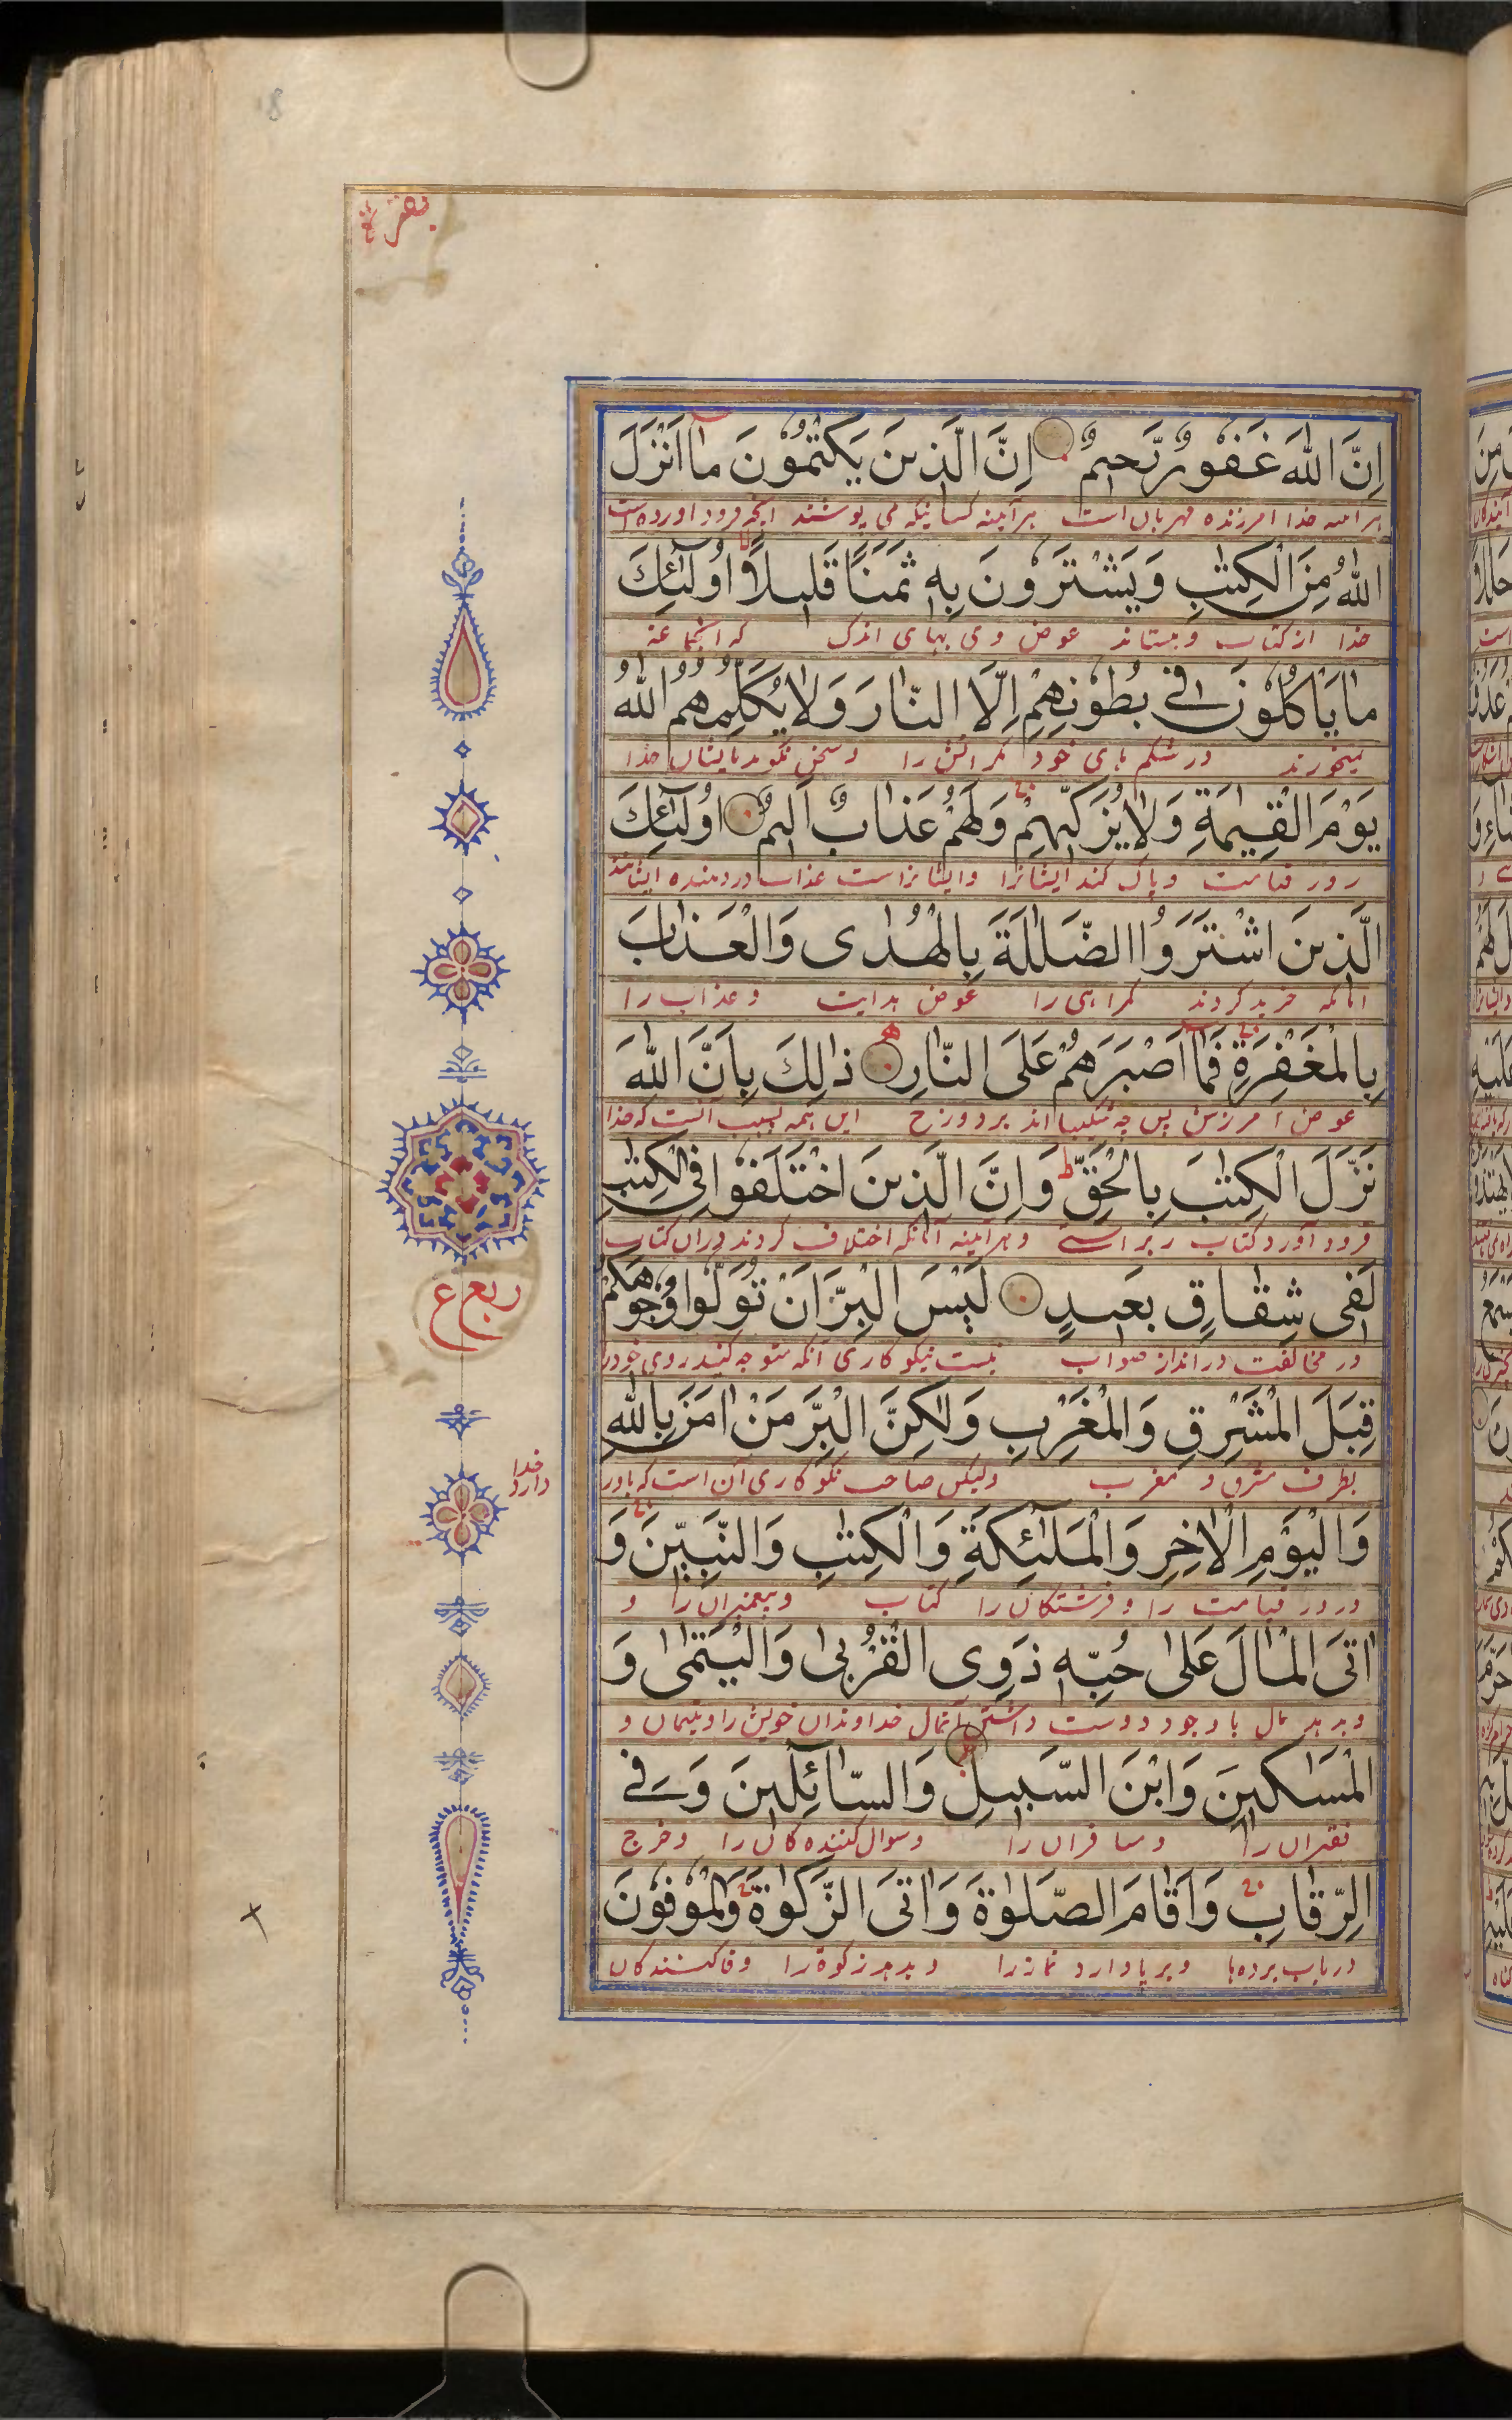 8
بقره
اِنَّ اللّٰهَ غَفُورٌ رَّحيمٌ اِنَّ الَّذينَ يَكْتُمُونَ مٰا اَنْزَلَ
هرآینه خدا امرزنده مهربان است هرآینه کسانیکه می پوشند انچه فرود اورده است
اللّٰهُ مِنَ الْكِتٰبِ وَيَشْتَرُونَ بِهٖ ثَمَنًا قَليلًا اُولٰٓئِكَ
خدا از کتاب و بستاند عوض وی بهای اندک که انجماعة
مٰا يَاْكُلُونَ فِي بُطُونِهِمْ اِلَّا النّٰارَ وَلٰا يُكَلِّمُهُمُ اللّٰهُ
نمیخورند در شکم های خود مگر اتش را و سخن نگوید با یشان خدا
يَوْمَ الْقِيٰمَةِ وَلٰا يُزَكّيهِمْ وَلَهُمْ عَذٰابٌ اَليمٌ اُولٰٓئِكَ
روز قیامت و پاک کند ایشانرا و ایشانراست عذاب دردهنده ایشانند
الَّذينَ اشْتَرَوُا الضَّلٰلَةَ بِالْهُدٰى وَالْعَذٰابَ
انانکه خرید کردند گمراهی را عوض هدایت و عذاب را
بِالْمَغْفِرَةِ فَمٰا اَصْبَرَهُمْ عَلَى النّٰارِ ذٰلِكَ بِاَنَّ اللّٰهَ
عوض امرزش پس چه شکیبا اند بر دوزخ این همه بسبب انست که خدا
نَزَّلَ الْكِتٰبَ بِالْحَقِّ ط وَاِنَّ الَّذينَ اخْتَلَفُوا فِي الْكِتٰبِ
فرود آورد کتاب براستے و هرآینه آنانکه اختلاف کردند دران کتاب
لَفي شِقٰاقٍ بَعيدٍ لَيْسَ الْبِرَّ اَنْ تُوَلُّوا وُجُوهَكُمْ
ربع ع
در مخالفت دراند از صواب نیست نیکو کاری آنکه متوجه کنید روی خود را
قِبَلَ الْمَشْرِقِ وَالْمَغْرِبِ وَلٰكِنَّ الْبِرَّ مَنْ اٰمَنَ بِاللّٰهِ
بطرف مشرق و مغرب ولیکن صاحب نکو کاری آن است که باور
خدا
دارد
وَالْيَوْمِ الْاٰخِرِ وَالْمَلٰٓئِكَةِ وَالْكِتٰبِ وَالنَّبِيّنَ وَ
و روز قیامت را و فرشتگان را کتاب و پیغمبران را و
اٰتَى الْمٰالَ عَلىٰ حُبِّهٖ ذَوِى الْقُرْبىٰ وَالْيَتٰمىٰ وَ
و بدهد مال با وجود دوست داشتن آنمال خداوندان خویش را و یتیمان و
الْمَسٰاكينَ وَابْنَ السَّبيلِ وَالسّٰائِلينَ وَفِي
فقیران را و مسافران را و سوال کننده کان را و خرج
الرِّقٰابِ وَاَقٰامَ الصَّلٰوةَ وَاٰتَى الزَّكٰوةَ وَالْمُوفُونَ
در باب برده ها و برپا دارد نماز را و بدهد زکوة را و وفا کنندگان